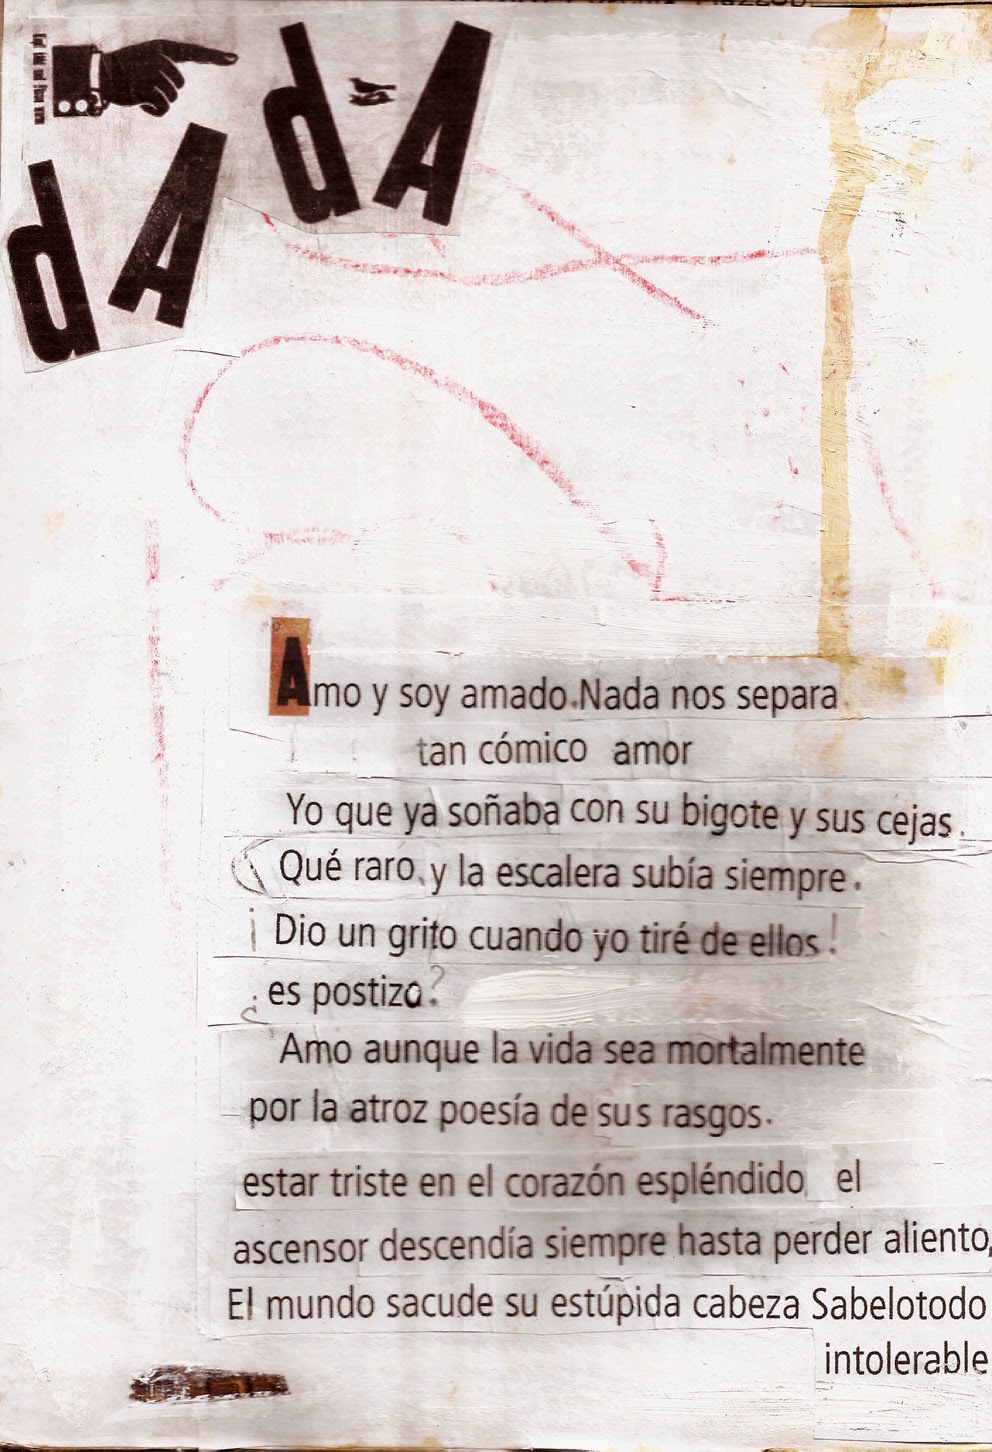 dA dA
Amo y soy amado.Nada nos separa.
tan cómico amor
Yo que ya soñaba con su bigote y sus cejas.
Qué raro, y la escalera subía siempre.
¡Dio un grito cuando yo tiré de ellos!
¿es postizo?
Amo aunque la vida sea mortalmente
por la atroz poesía de sus rasgos.
estar triste en el corazón espléndido, el
ascensor descendía siempre hasta perder aliento,
El mundo sacude su estúpida cabeza Sabelotodo
intolerable